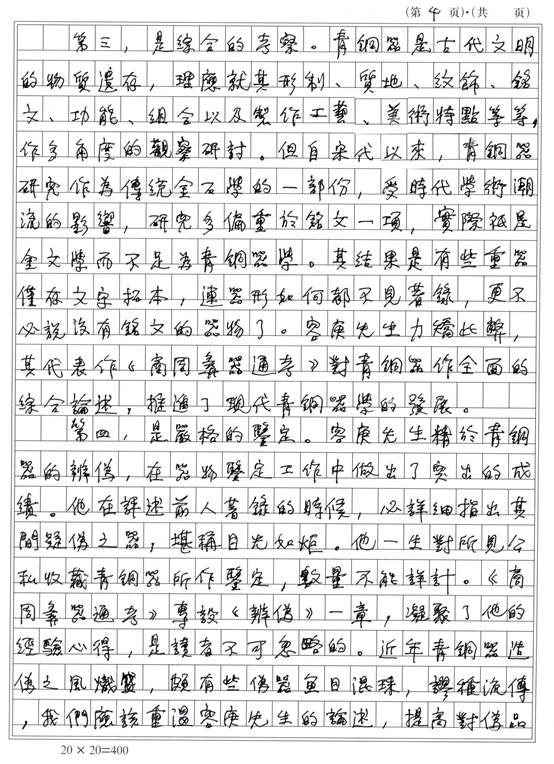 (第 4 頁)·(共　　頁)
第三，是綜合的考察。青銅器是古代文明
的物質遺存，理應就其形制、質地、紋飾、銘
文、功能、組合以及製作工藝、美術特點等等，
作多角度的觀察研討。但自宋代以來，青銅器
研究作為傳統金石學的一部份，受時代學術潮
流的影響，研究多偏重於銘文一項，實際祇是
金文學而不足為青銅器學。其結果是有些重器
僅存文字拓本，連器形如何都不見著錄，更不
必說沒有銘文的器物了。容庚先生力矯此弊，
其代表作《商周彝器通考》對青銅器作全面的
綜合論述，推進了現代青銅器學的發展。
第四，是嚴格的鑒定。容庚先生精於青銅
器的辨偽，在器物鑒定工作中做出了突出的成
績。他在評述前人著錄的時候，必詳細指出其
間疑偽之器，堪稱目光如炬。他一生對所見公
私收藏青銅器所作鑒定，數量不能詳計。《商
周彝器通考》專設《辨偽》一章，凝聚了他的
經驗心得，是讀者不可忽略的。近年青銅器造
偽之風熾盛，頗有些偽器魚目混珠，謬種流傳
，我們應該重溫容庚先生的論述，提高對偽品
20×20=400